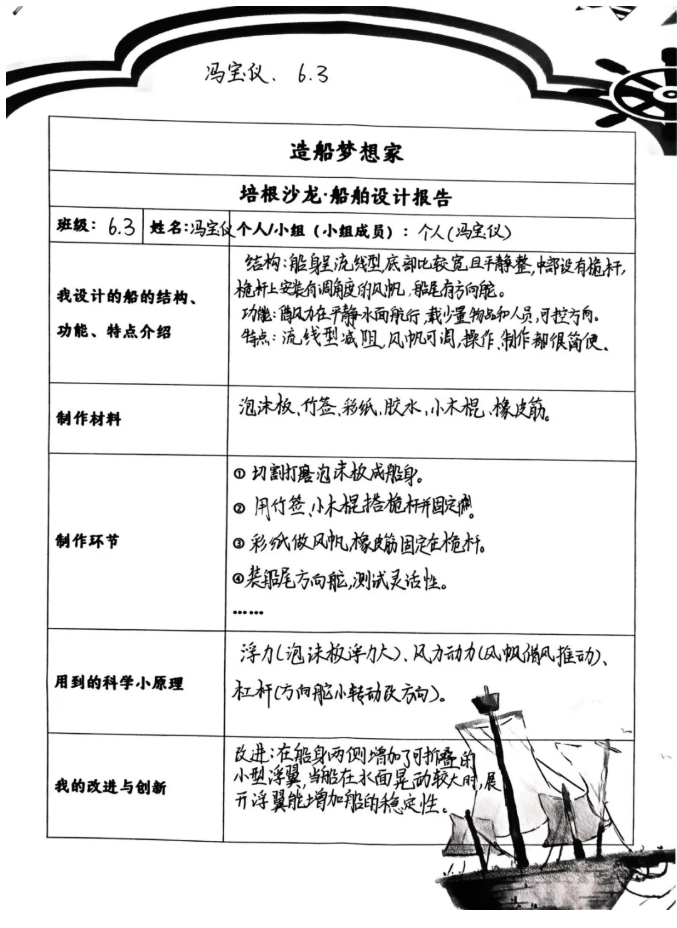 冯宝仪、6.3
造船梦想家
培根沙龙·船舶设计报告
班级：6.3 姓名：冯宝仪 个人/小组（小组成员）：个人（冯宝仪）
我设计的船的结构、
功能、特点介绍
结构：船身呈流线型，底部比较宽且平静整，中部设有桅杆，
桅杆上安装有调角度的风帆，船尾有方向舵。
功能：借风力在平静水面航行，载少量物品和人员，可控方向。
特点：流线型减阻，风帆可调，操作、制作都很简便。
制作材料
泡沫板、竹签、彩纸、胶水、小木棍、橡皮筋。
制作环节
① 切割打磨泡沫板成船身。
② 用竹签、小木棍搭桅杆并固定
③ 彩纸做风帆，橡皮筋固定在桅杆。
④ 装船尾方向舵，测试灵活性。
……
用到的科学小原理
浮力（泡沫板浮力大）、风力动力（风帆借风推动）、
杠杆（方向舵小转动改方向）。
我的改进与创新
改进：在船身两侧增加了可折叠的
小型浮翼，当船在水面晃动较大时，展
开浮翼能增加船的稳定性。